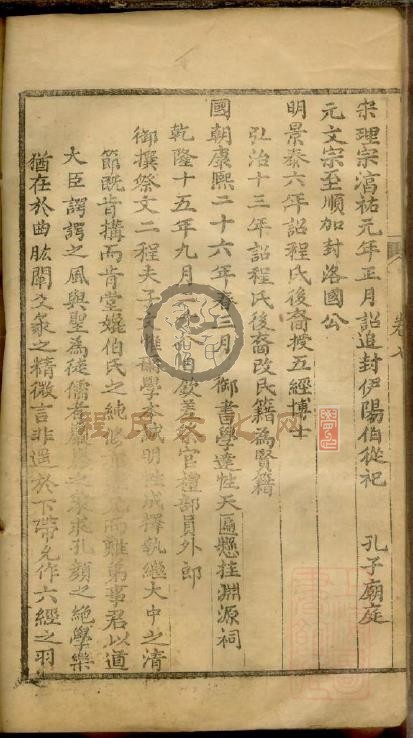 宋理宗淳祐元年正月詔追封伊陽伯從祀 孔子廟庭
元文宗至順加封洛國公
明景泰六年詔程氏後裔授五經博士
弘治十三年詔程氏後裔改民籍為賢籍
國朝康熙二十六年春三月 御書學達性天匾懸挂淵源祠
乾隆十五年九月二 欽差祭官禮部員外郎
御撰祭文二程夫子文惟爾學本誠明性成擇執繼大中之清
節既肯構而肯堂媲伯氏之純 而難弟事君以道
大臣諤諤之風與聖為徒儒者 之 求孔顏之絶學樂
猶在於曲肱闡爻彖之精微言非遺於下帶允作六經之羽
卷七
程氏文化网